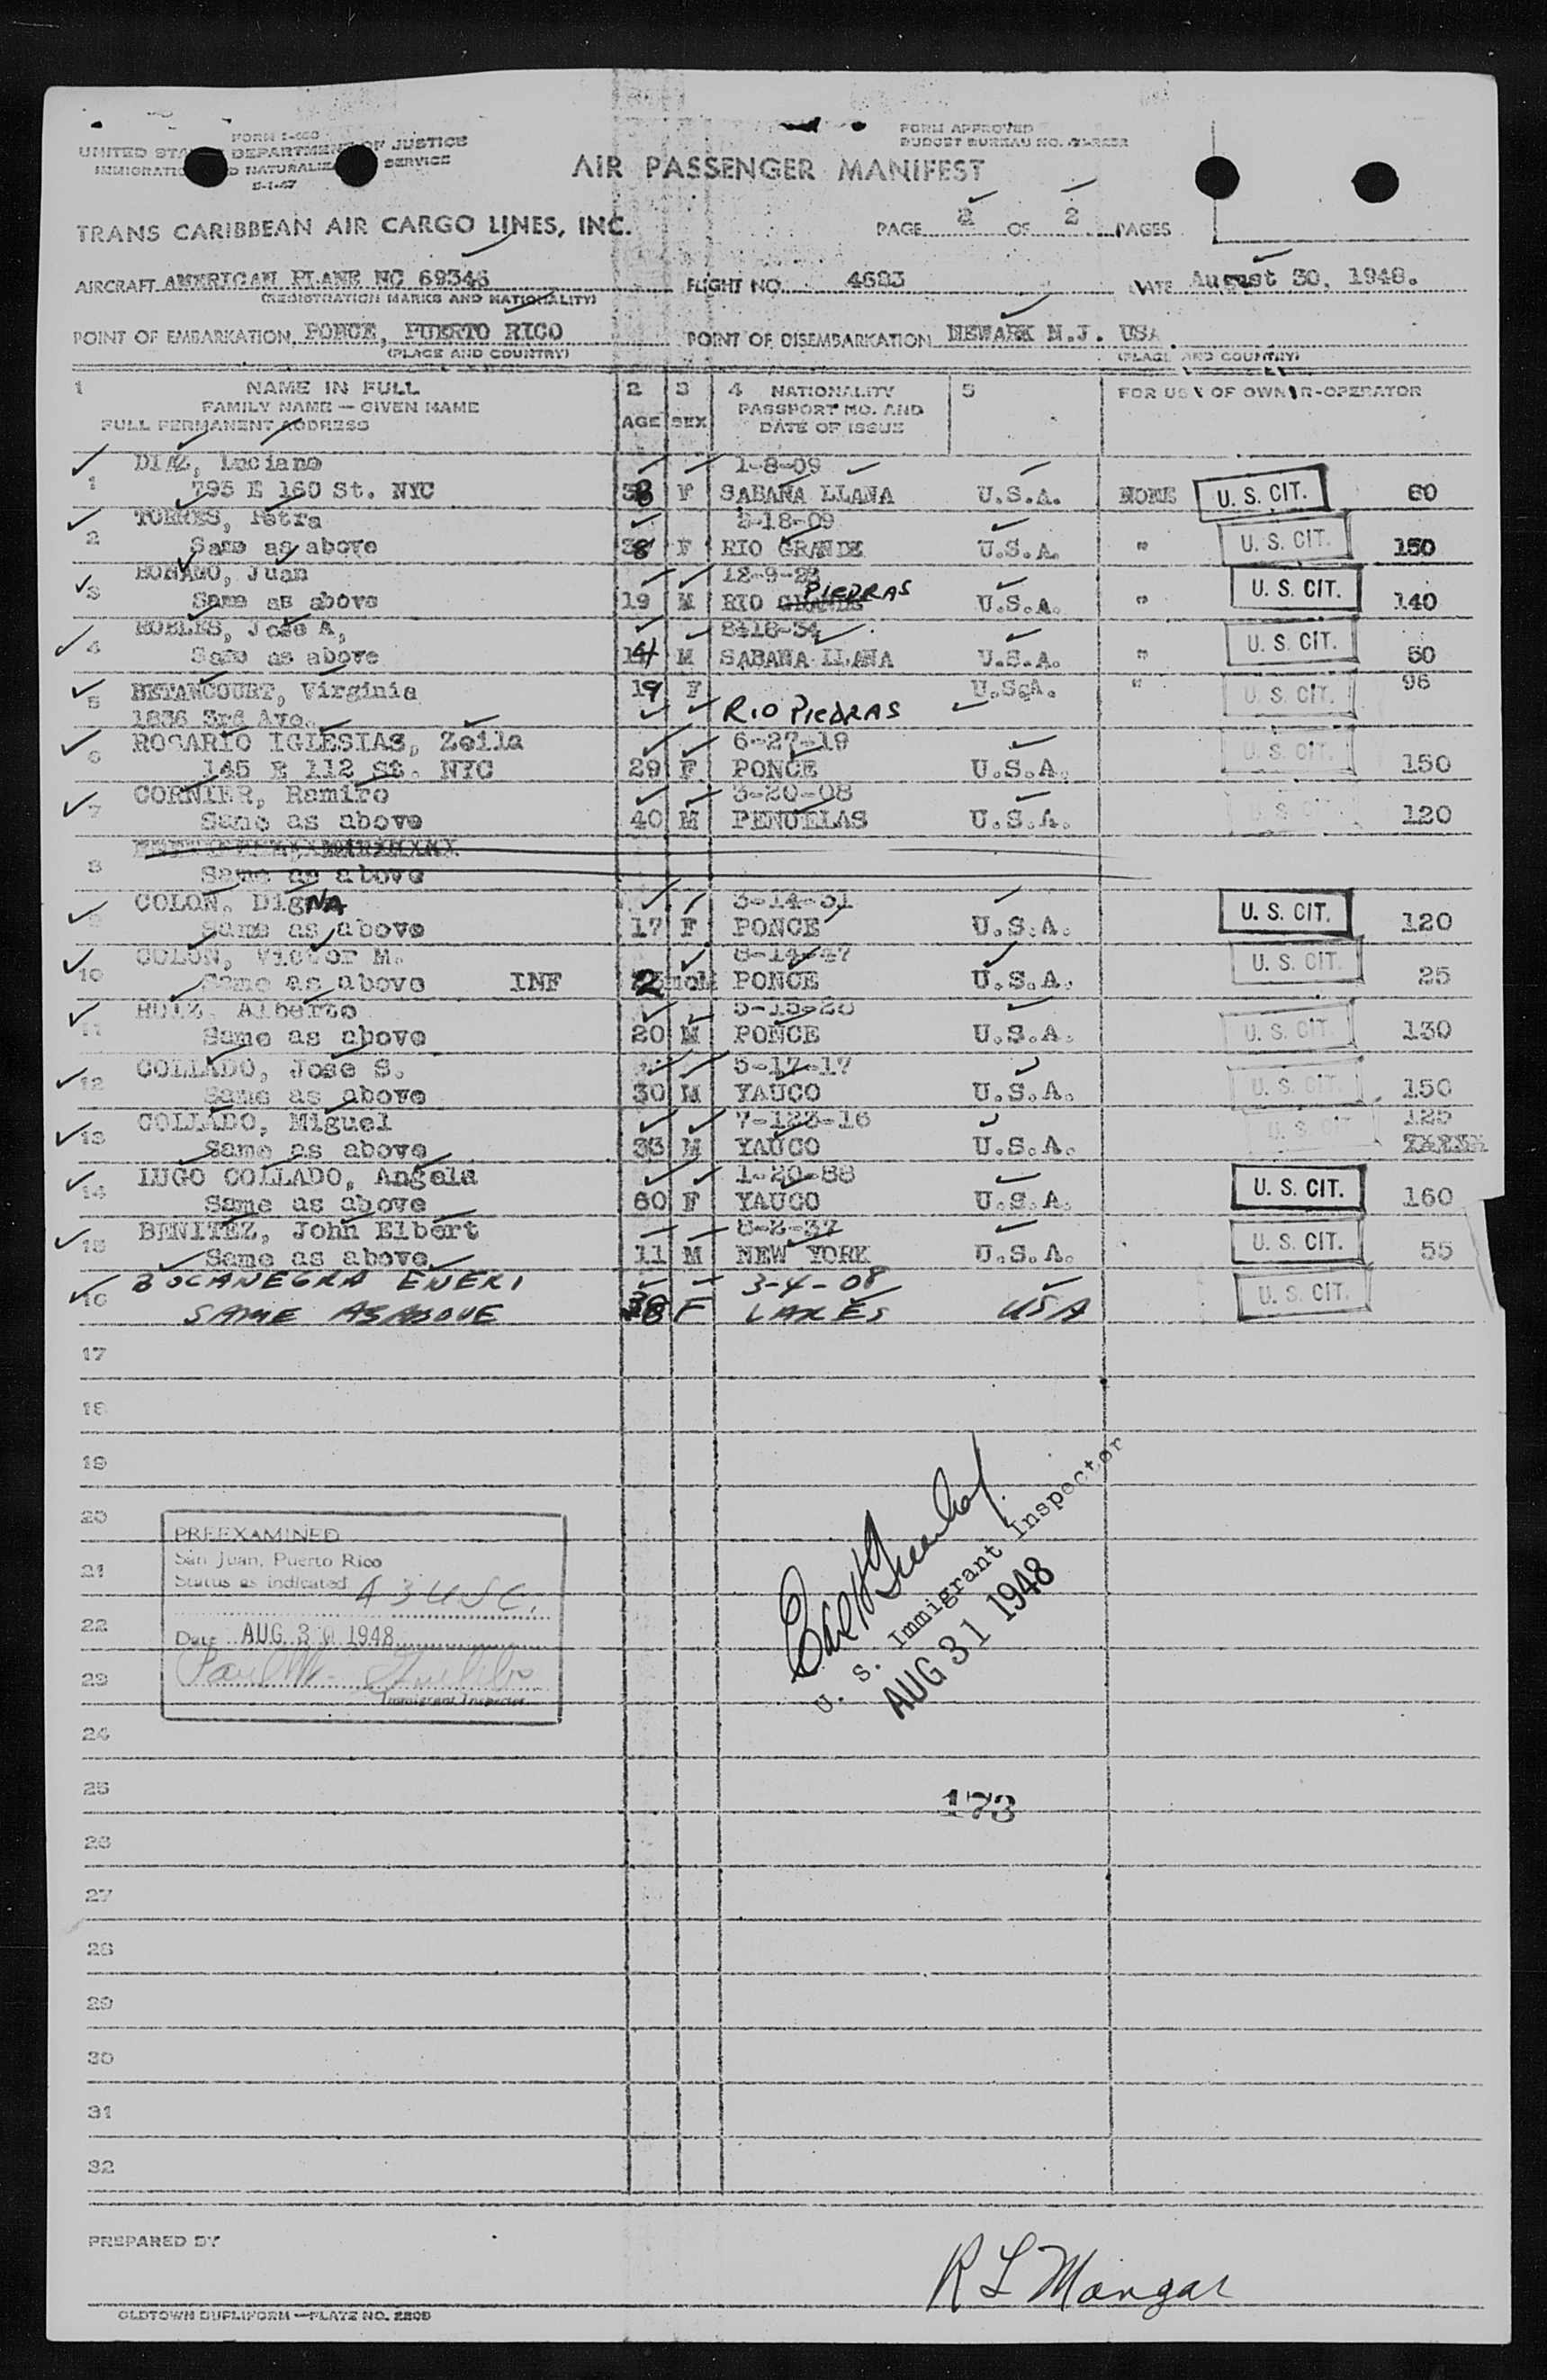 FORM I-
UNITED STATES DEPARTMENT OF JUSTICE
IMMIGRATION AND NATURALIZATION SERVICE
5-1-47
FORM APPROVED
BUDGET BUREAU NO.
AIR PASSENGER MANIFEST
TRANS CARIBBEAN AIR CARGO LINES, INC.
PAGE 2 OF 2 PAGES
AIRCRAFT AMERICAN PLANE NC 69346 FLIGHT NO. 4683 DATE August 30, 1948.
(REGISTRATION MARKS AND NATIONALITY)
POINT OF EMBARKATION PONCE, PUERTO RICO POINT OF DISEMBARKATION NEWARK N.J. USA
(PLACE AND COUNTRY) (PLACE AND COUNTRY)
1 NAME IN FULL 2 3 4 NATIONALITY 5 FOR USE OF OWNER-OPERATOR
FAMILY NAME — GIVEN NAME PASSPORT NO. AND
FULL PERMANENT ADDRESS AGE SEX DATE OF ISSUE
DIAZ, Luciano 1-8-09
1 795 E 160 St. NYC 38 F SABANA LLANA U.S.A. NONE U. S. CIT. 60
TORRES, Petra -18-09
2 Same as above 38 F RIO GRANDE U.S.A. " U. S. CIT. 150
ROMANO, Juan 12-9-28
3 Same as above 19 M RIO GRANDE PIEDRAS U.S.A. " U. S. CIT. 140
ROBLES, Jose A, 8418-34
4 Same as above 14 M SABANA LLANA U.S.A. " U. S. CIT. 50
5 BETANCOURT, Virginia 19 F U.S.A. " U. S. CIT. 96
1836 3rd Ave. RIO PIEDRAS
ROSARIO IGLESIAS, Zoila 6-27-19
6 145 E 112 St. NYC 29 F PONCE U.S.A. U. S. CIT. 150
CORNIER, Ramiro 3-20-08
7 Same as above 40 M PENUELAS U.S.A. U. S. CIT. 120
8 Same as above
COLON, DigNA 3-14-31
9 Same as above 17 F PONCE U.S.A. U. S. CIT. 120
COLON, Victor M. 8-14-47
10 Same as above INF 2 PONCE U.S.A. U. S. CIT. 25
RUIZ, Alberto 5-15-28
11 Same as above 20 M PONCE U.S.A. U. S. CIT. 130
COLLADO, Jose S. 5-17-17
12 Same as above 30 M YAUCO U.S.A. U. S. CIT. 150
COLLADO, Miguel 7-123-16 125
13 Same as above 33 M YAUCO U.S.A. U. S. CIT.
LUGO COLLADO, Angela 1-20-88
14 Same as above 60 F YAUCO U.S.A. U. S. CIT. 160
BENITEZ, John Elbert 8-2-37
15 Same as above 11 M NEW YORK U.S.A. U. S. CIT. 55
BOCANEGRA ENERI 3-4-08
16 SAME AS ABOVE F LARES USA U. S. CIT.
17
18
19
20
21
22
23
24
25
26
27
28
29
30
31
32
PREEXAMINED
San Juan, Puerto Rico
Status as indicated 43 USC.
Date AUG 30 1948
Immigrant Inspector
U. S. Immigrant Inspector
AUG 31 1948
173
PREPARED BY
R L Mangar
OLDTOWN DUPLIFORM—PLATE NO. 2208